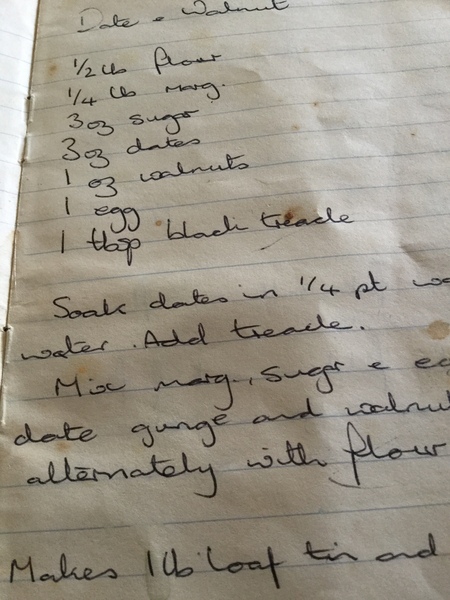 Date e Walnut
1/2 lb flour
1/4 lb marg.
3oz sugar
3oz dates
1 oz walnuts
1 egg
1 tbsp black treacle
Soak dates in 1/4 pt
water. Add treacle.
Mix marg., sugar e
date gunge and
alternately with flour
Makes 1lb loaf tin and